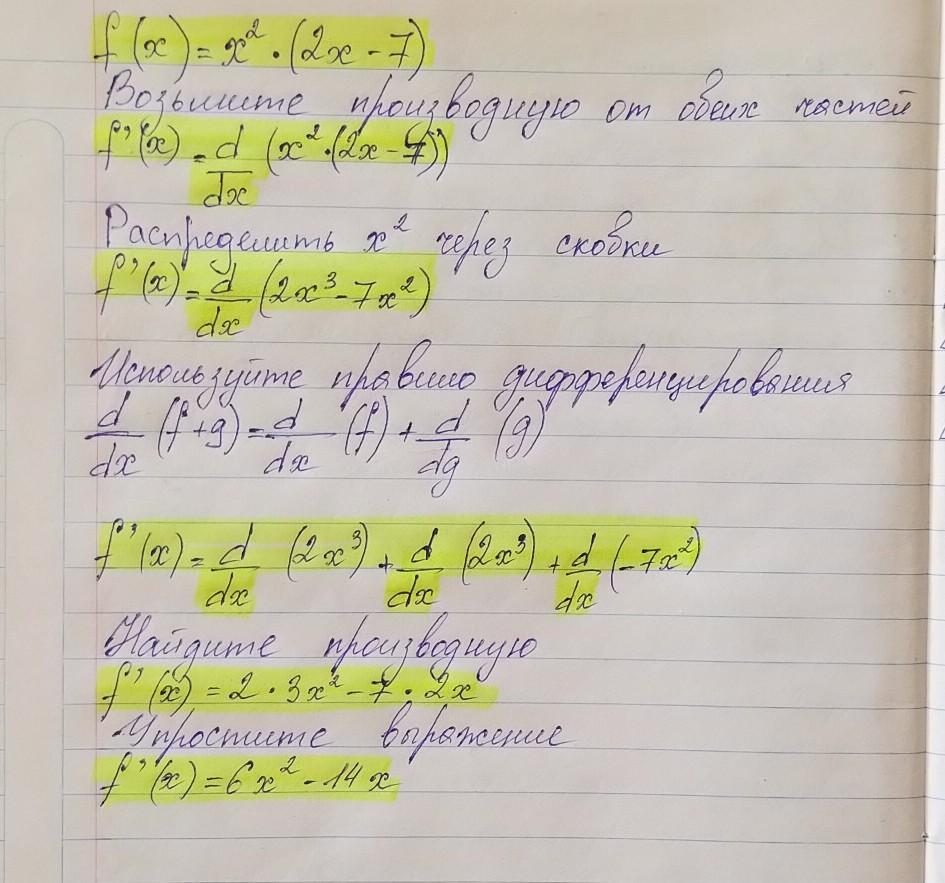 f(x) = x² · (2x - 7)
Возьмите производную от обеих частей
f'(x) = d/dx (x² · (2x - 7))
Распределить x² через скобки
f'(x) = d/dx (2x³ - 7x²)
Используйте правило дифференцирования
d/dx (f + g) = d/dx (f) + d/dg (g)
f'(x) = d/dx (2x³) + d/dx (2x³) + d/dx (-7x²)
Найдите производную
f'(x) = 2 · 3x² - 7 · 2x
Упростите выражение
f'(x) = 6x² - 14x